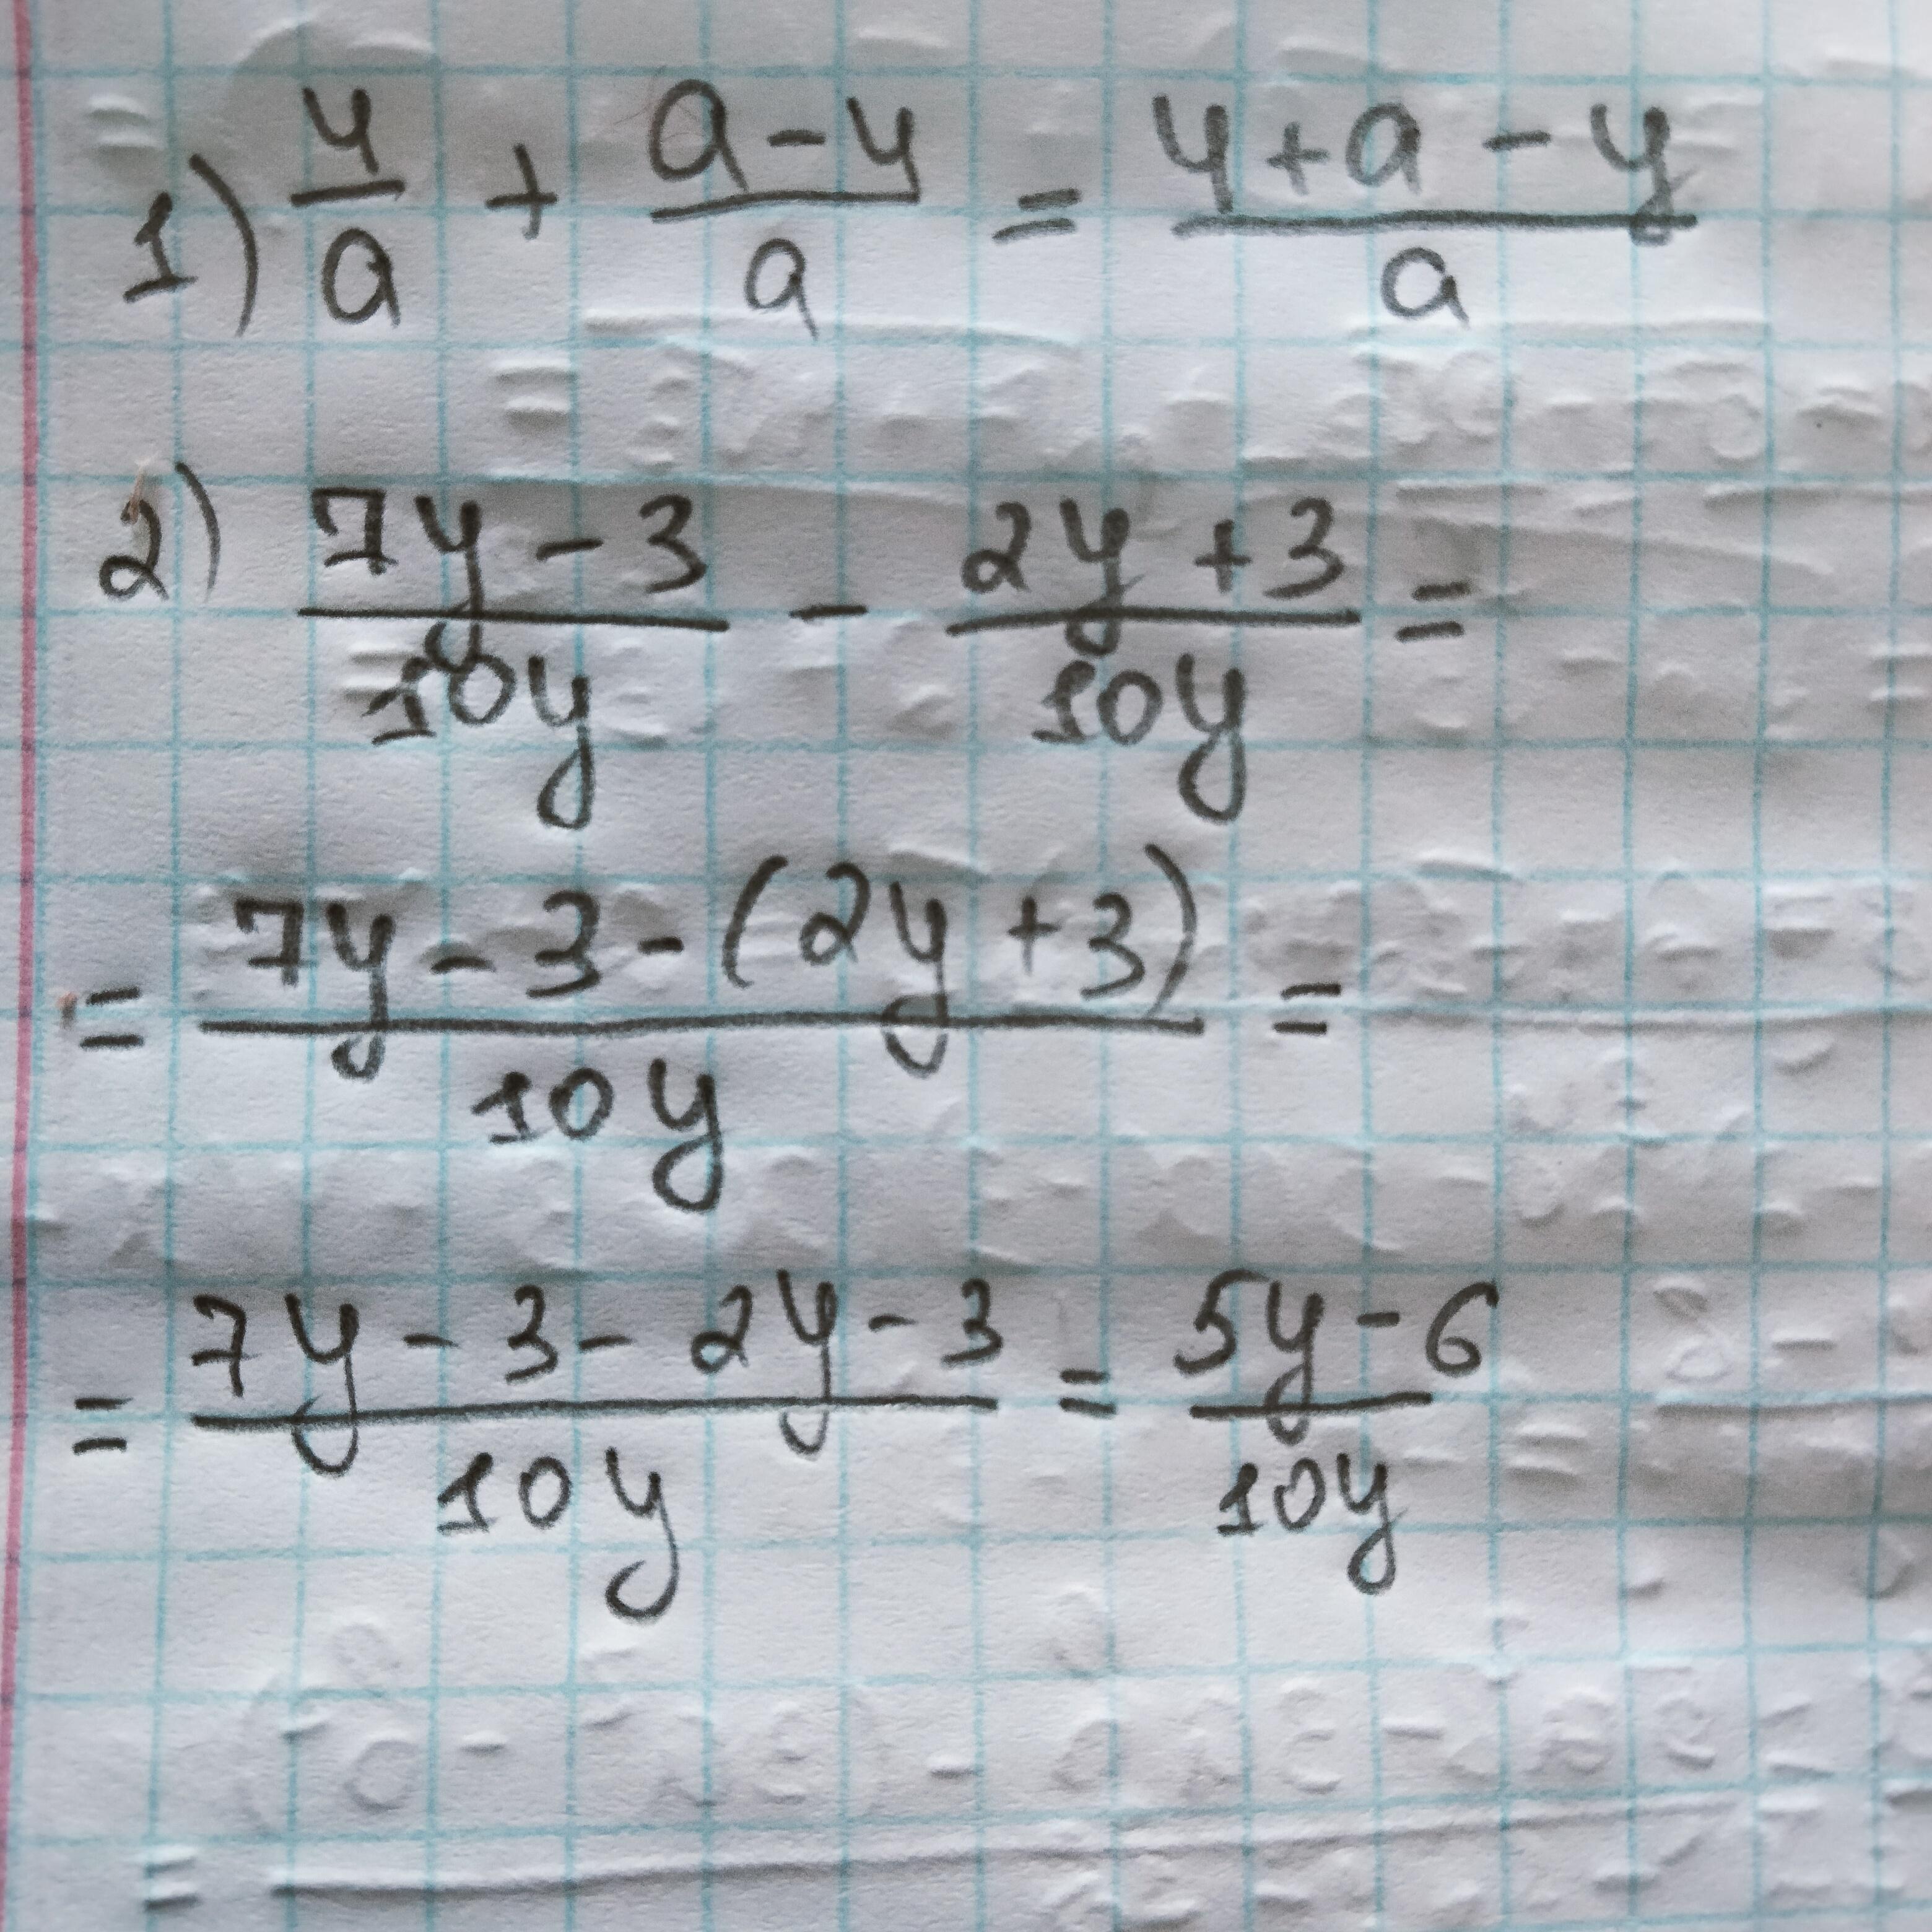 1) 4/a + (a - y)/a = (4 + a - y)/a
2) (7y - 3)/10y - (2y + 3)/10y =
= (7y - 3 - (2y + 3))/10y =
= (7y - 3 - 2y - 3)/10y = (5y - 6)/10y